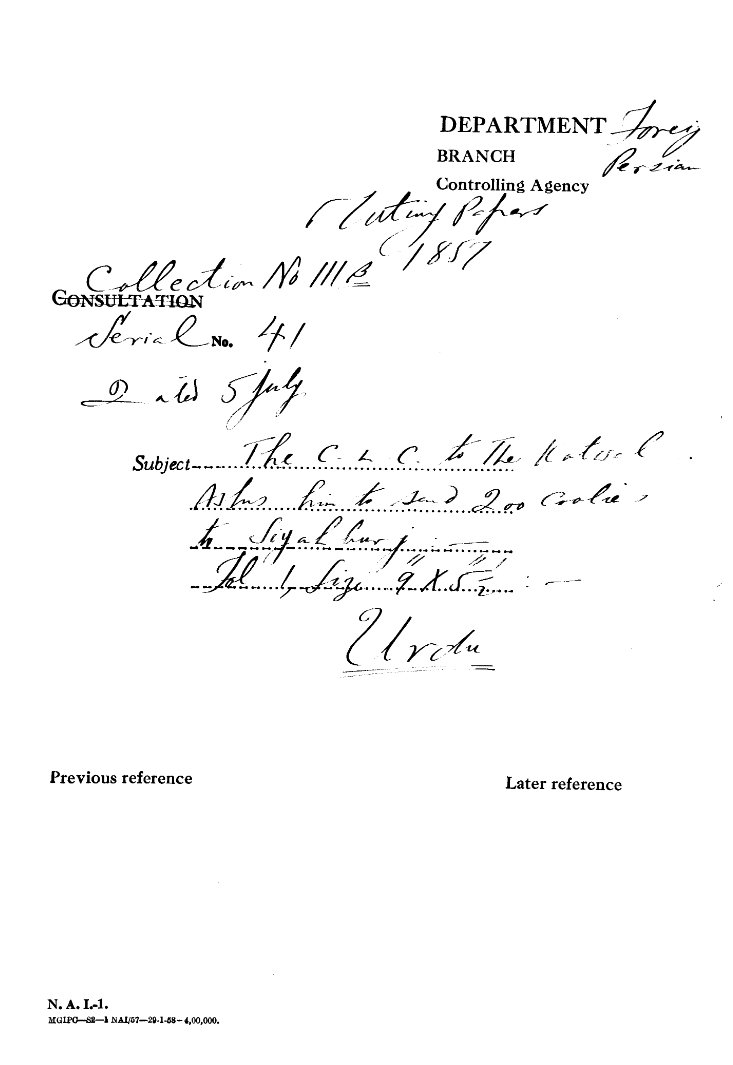 DEPARTMENT Foreig
BRANCH Persian
Controlling Agency
Mutiny Papers
1857
Collection No III B
CONSULTATION
Serial No. 41
Dated 5 July
Subject The C- L C. to The Kotwal
Asks him to send 200 Coolies
to Siyah burj :—
Fol 1, Size 9" X 5½" : —
Urdu
Previous reference
Later reference
N. A. I.-1.
MGIPC—S2—1 NAI/57—29-1-58—4,00,000.